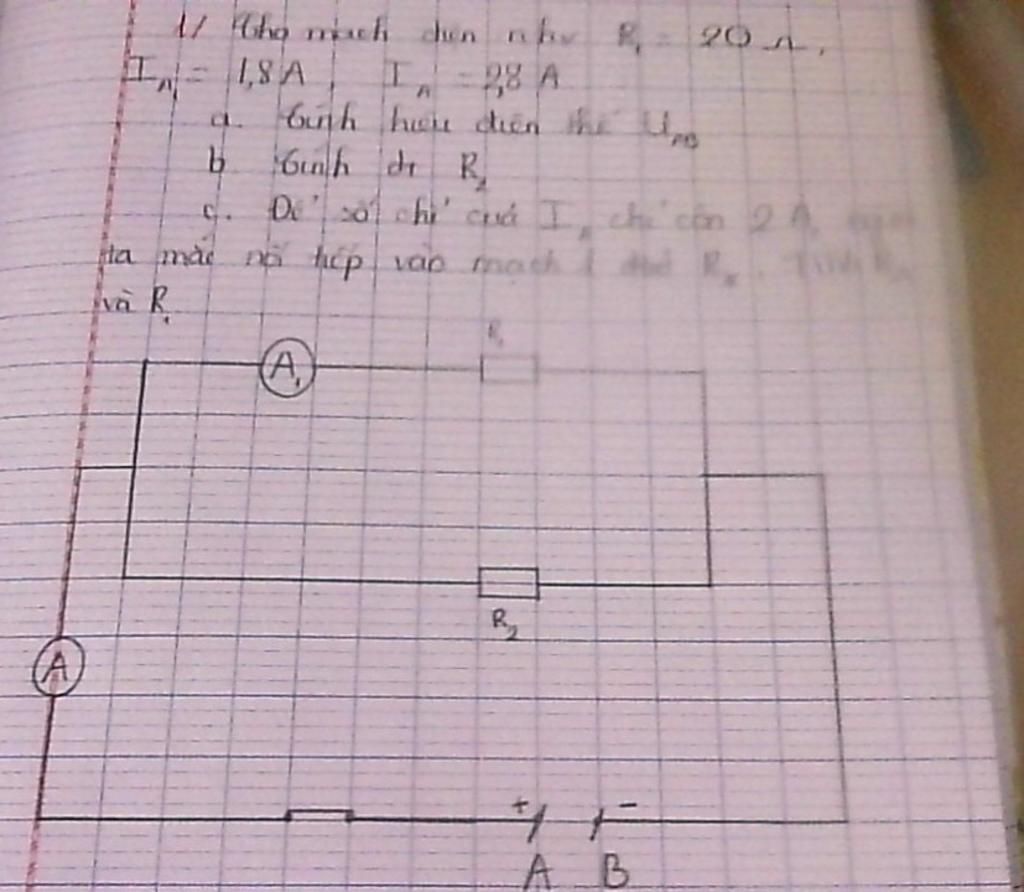 1/ Cho mạch điện như R₁ = 20 Ω,
I_A₁ = 1,8 A, I_A = 2,8 A
a. Tính hiệu điện thế U_AB
b Tính đt R₂
c. Để số chỉ của I_A chỉ còn 2 A,
ta mắc nối tiếp vào mạch 1 R_x. Tính
và R
A₁
R₁
R₂
A
+ -
A B